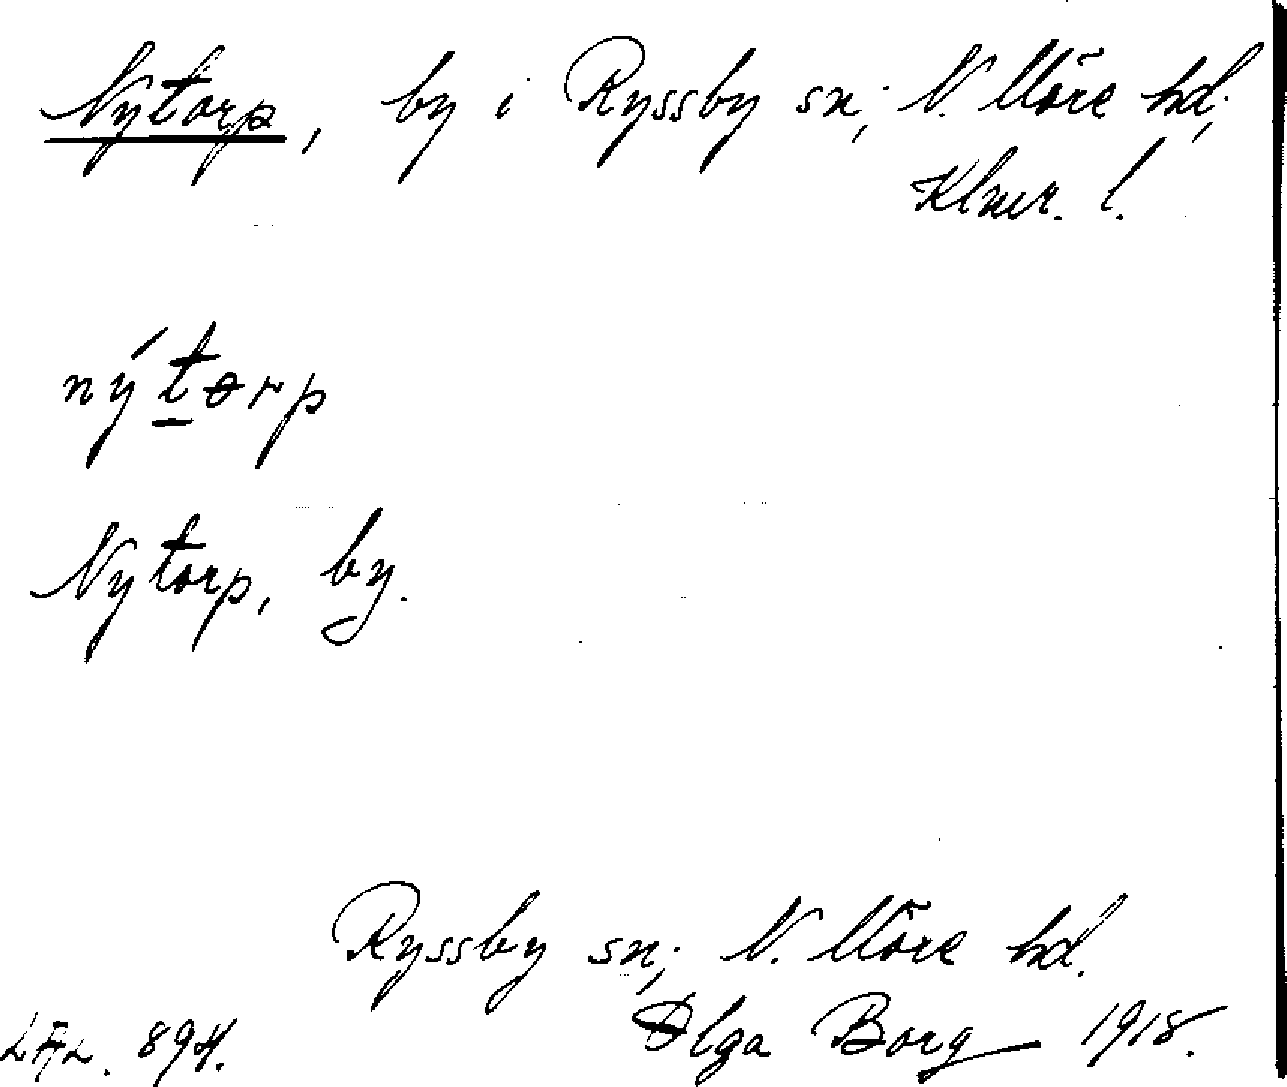 Nytorp, by i Ryssby sn; N. Möre hd;
Klmr. l.
nýtɵrp
Nytorp, by.
Ryssby sn; N. Möre hd.
Olga Borg 1918.
894.